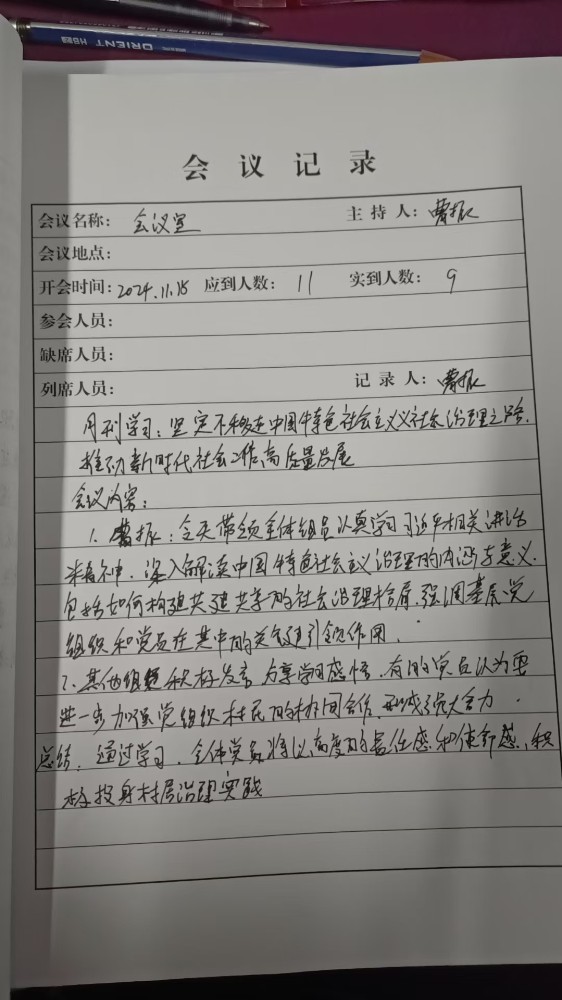 ORIENT HB铅
会议记录
会议名称: 会议室 主持人: 曹振
会议地点:
开会时间: 2024.11.15 应到人数: 11 实到人数: 9
参会人员:
缺席人员:
列席人员: 记录人: 曹振
月刊学习: 坚定不移走中国特色社会主义义社会治理之路.
推动新时代社会工作高质量发展
会议内容:
1. 曹振: 今天带领全体组员认真学习习近平相关讲话
精神. 深入解读中国特色社会主义治理的内涵与意义.
包括如何构建共建共享的社会治理格局. 强调基层党
组织和党员在其中的关键引领作用.
2. 其他组员积极发言 分享学习感悟. 有的党员认为要
进一步加强党组织村民的协同合作, 形成强大合力.
总结: 通过学习. 全体党员将以高度的责任感和使命感, 积
极投身村居治理实践